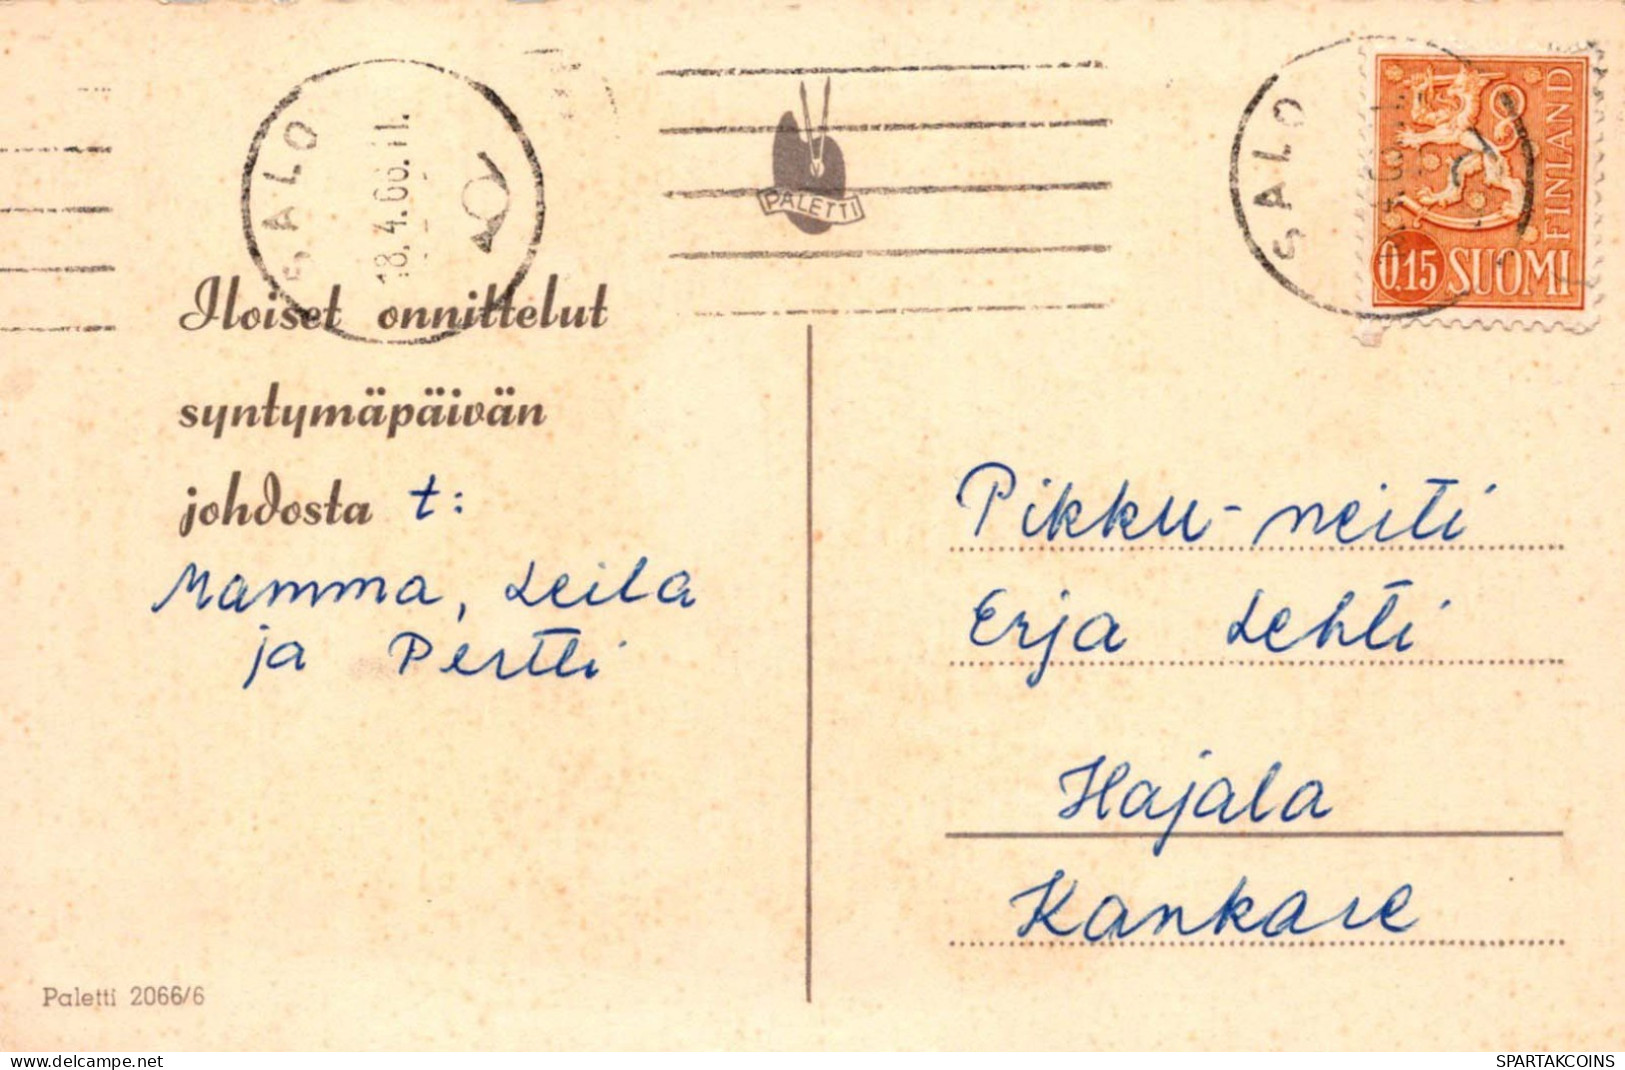 SALO
18.4.66.11.
PALETTI
SALO
FINLAND
0.15 SUOMI
Iloiset onnittelut
syntymäpäivän
johdosta t:
Mamma, Leila
ja Pertti
Pikku-neiti
Erja Lehti
Hajala
Kankare
Paletti 2066/6
www.delcampe.net
SPARTAKCOINS